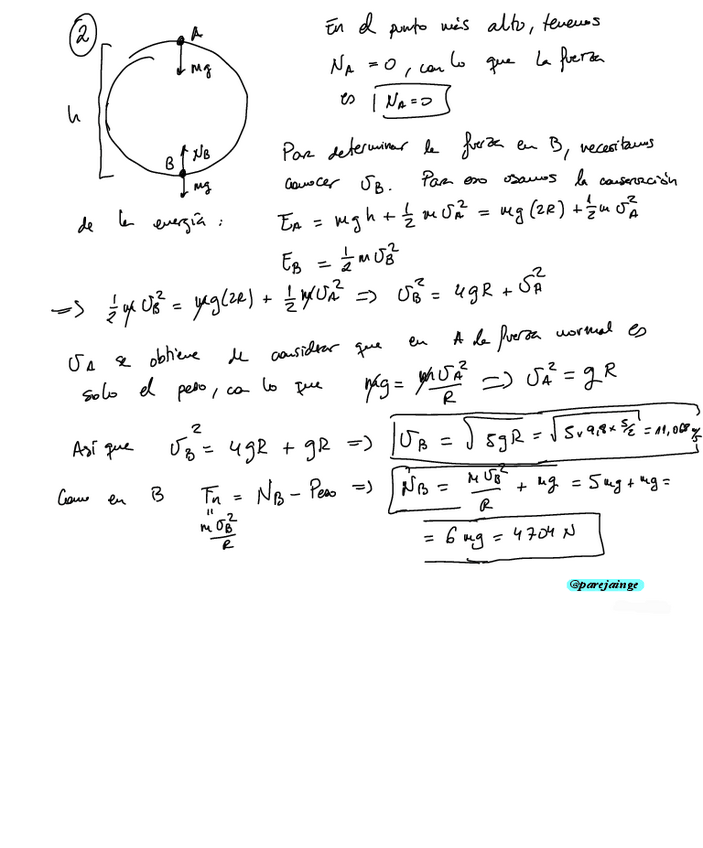 2
A
mg
h
B
N_B
mg
En el punto más alto, tenemos
N_A = 0, con lo que la fuerza
es N_A = 0
Para determinar la fuerza en B, necesitamos
conocer v_B. Para eso usamos la conservación
de la energía: E_A = mgh + 1/2 m v_A^2 = mg(2R) + 1/2 m v_A^2
E_B = 1/2 m v_B^2
=> 1/2 m v_B^2 = mg(2R) + 1/2 m v_A^2 => v_B^2 = 4gR + v_A^2
v_A se obtiene de considerar que en A la fuerza normal es
solo el peso, con lo que mg = m v_A^2 / R => v_A^2 = gR
Así que v_B^2 = 4gR + gR => v_B = √(5gR) = √(5 × 9,8 × 5/2) = 11,068 m/s
Como en B F_n = N_B - Peso => N_B = m v_B^2 / R + mg = 5mg + mg =
"
m v_B^2 / R
= 6mg = 4704 N
@parejainge